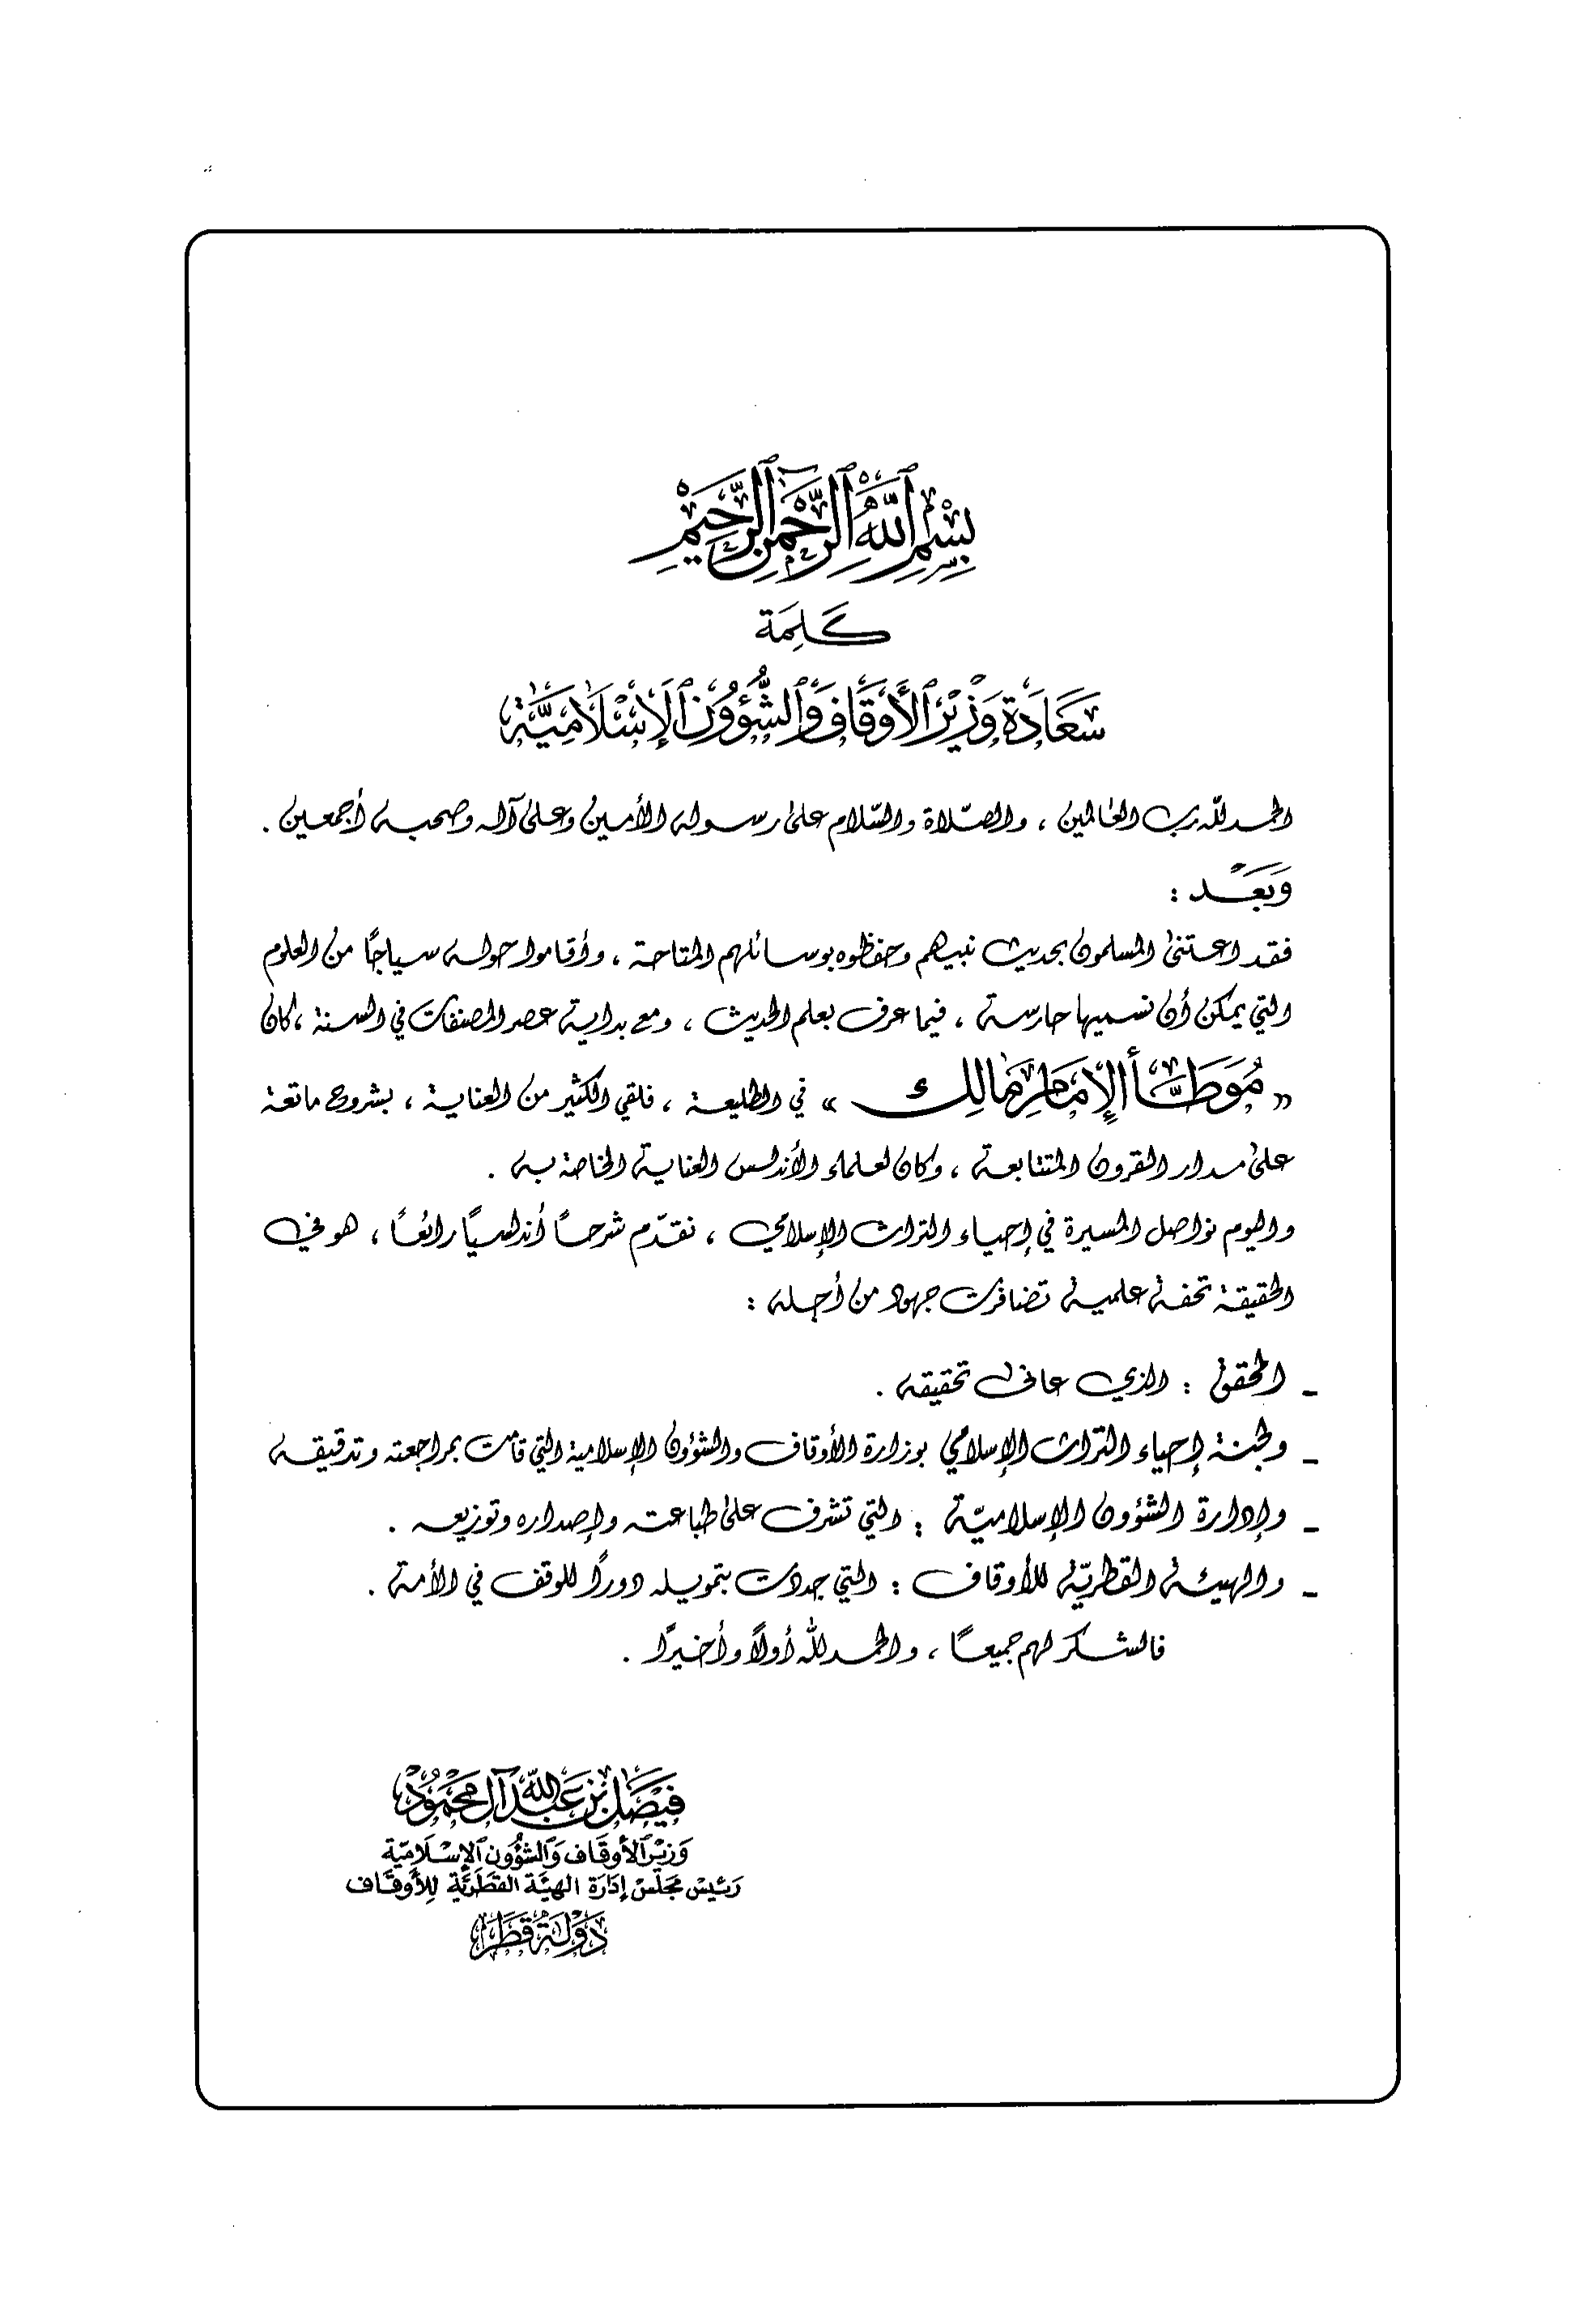 بِسْمِ ٱللَّهِ ٱلرَّحْمَٰنِ ٱلرَّحِيمِ
كَلِمَة
سَعَادَة وَزِيْر ٱلأَوقَاف وَٱلشُّؤُوْن ٱلإِسْلَامِيَّة
الحمد للّه رب العالمين ، والصّلاة والسّلام على رسوله الأمين وعلى آله وصحبه أجمعين .
وَبَعَد :
فقد اعتنى المسلمون بحديث نبيهم وحفظوه بوسائلهم المتاحة ، وأقاموا حوله سياجًا من العلوم
التي يمكن أن نسميها حارسة ، فيما عرف بعلم الحديث ، ومع بداية عصر المصنفات في السنة ، كان
« مُوَطَّأ الإِمَام مَالِك » في الطليعة ، فلقي الكثير من العناية ، بشروح ماتعة
على مدار القرون المتتابعة ، وكان لعلماء الأندلس العناية الخاصة به .
واليوم نواصل المسيرة في إحياء التراث الإسلامي ، نقدّم شرحاً أندلسيًا رائعاً ، هو في
الحقيقة تحفة علمية تضافرت جهود من أجله :
- المحقق : الذي عانى تحقيقه .
- ولجنة إحياء التراث الإسلامي بوزارة الأوقاف والشؤون الإسلامية التي قامت بمراجعته وتدقيقه
- وإدارة الشؤون الإسلاميّة : التي تشرف على طباعته وإصداره وتوزيعه .
- والهيئة القطريّة للأوقاف : التي جددت بتمويله دورًا للوقف في الأمة .
فالشكر لهم جميعًا ، والحمد لله أولاً وأخيرًا .
فَيْصَل بْن عَبْد اللَّه آل مَحْمُوْد
وَزِيْر ٱلأَوقَاف وَٱلشُّؤُوْن ٱلإِسْلَامِيّة
رَئِيس مَجَلس إدَارَة الهيئَة القطَرِيَّة لِلأَوقَاف
دَوْلَة قَطَر